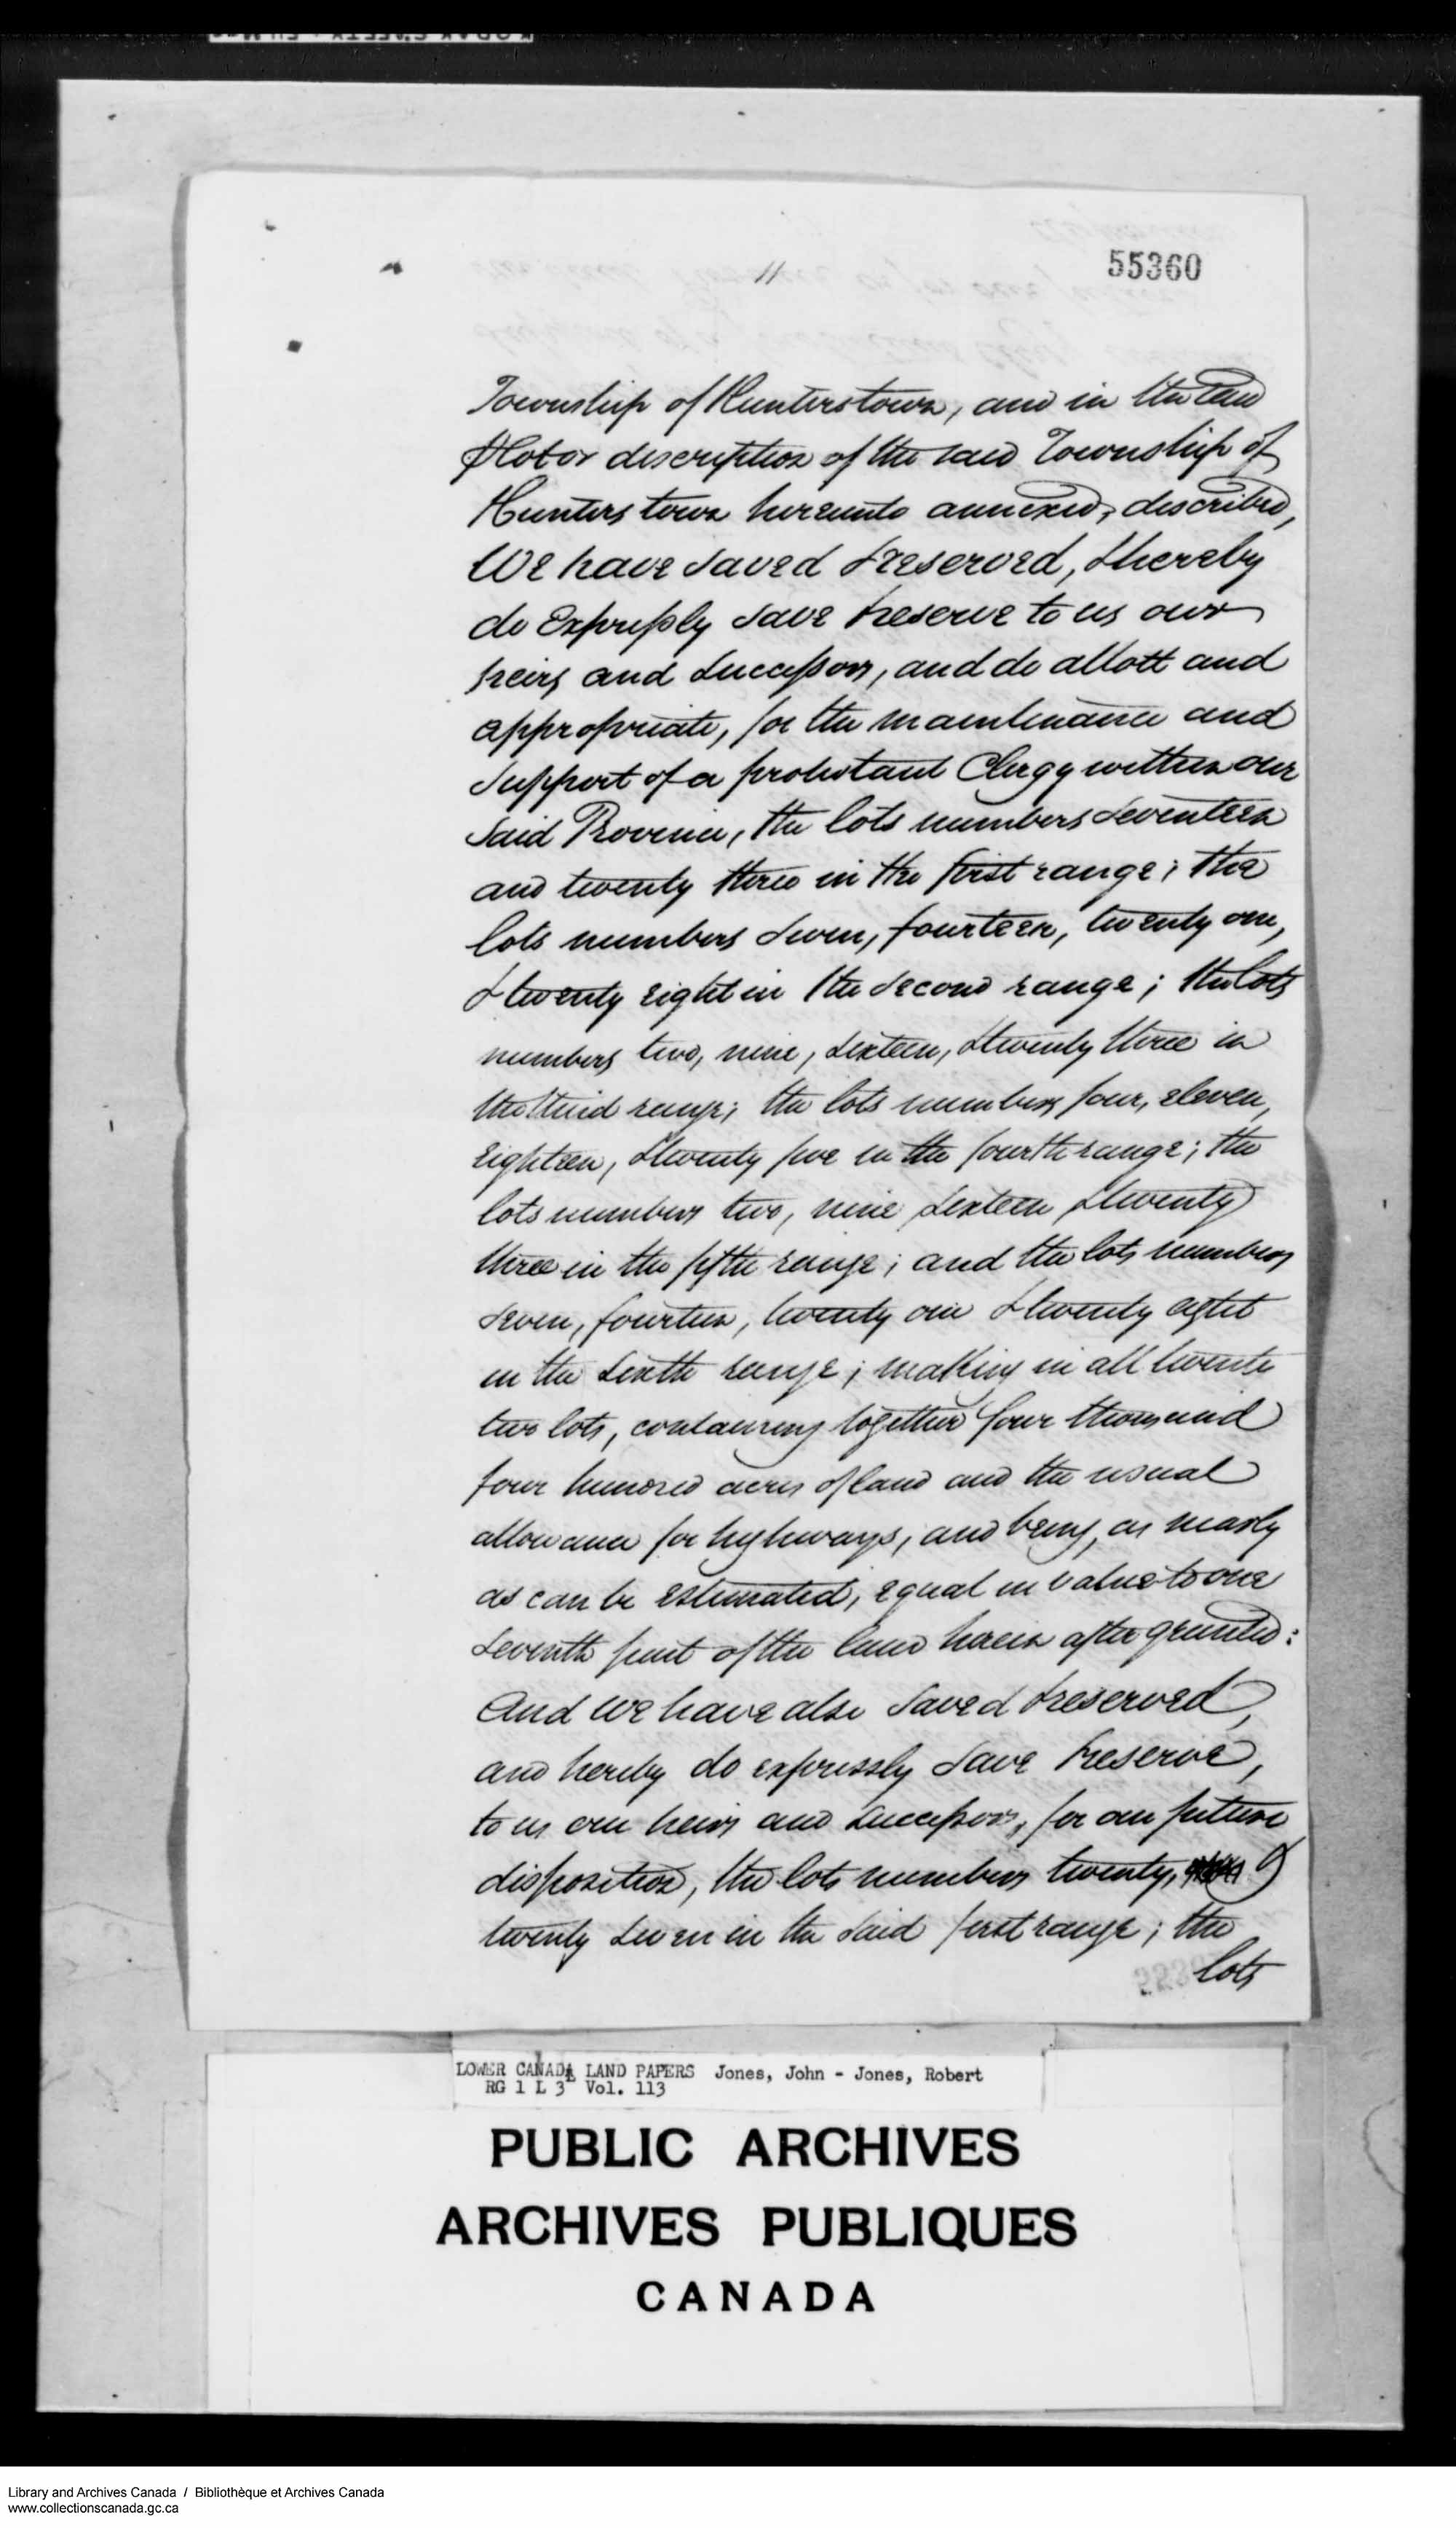 11
55360
Township of Hunterstown, and in the said
Plot or description of the said Township of
Hunterstown hereunto annexed, described,
We have saved & reserved, & hereby
do Expressly save & reserve to us our
heirs and Successors, and do allott and
appropriate, for the maintenance and
Support of a protestant Clergy within our
said Province, the lots numbers Seventeen
and twenty three in the first range; the
lots numbers Seven, fourteen, twenty one,
& twenty eight in the second range; the lots
numbers two, nine, sixteen, & twenty three in
the third range; the lots numbers four, eleven,
Eighteen, & twenty five in the fourth range; the
lots numbers two, nine sixteen & twenty
three in the fifth range; and the lots numbers
Seven, fourteen, twenty one & twenty eight
in the Sixth range; making in all twenty
two lots, containing together four thousand
four hundred acres of land and the usual
allowance for highways, and being, as nearly
as can be estimated, equal in value to one
Seventh part of the land herein after granted:
And We have also Saved & reserved,
and hereby do expressly Save & reserve,
to us our heirs and Successors, for our future
disposition, the lots numbers twenty, &
twenty Seven in the Said first range; the
lots
LOWER CANADA LAND PAPERS Jones, John - Jones, Robert
RG 1 L 3 Vol. 113
PUBLIC ARCHIVES
ARCHIVES PUBLIQUES
CANADA
Library and Archives Canada / Bibliothèque et Archives Canada
www.collectionscanada.gc.ca